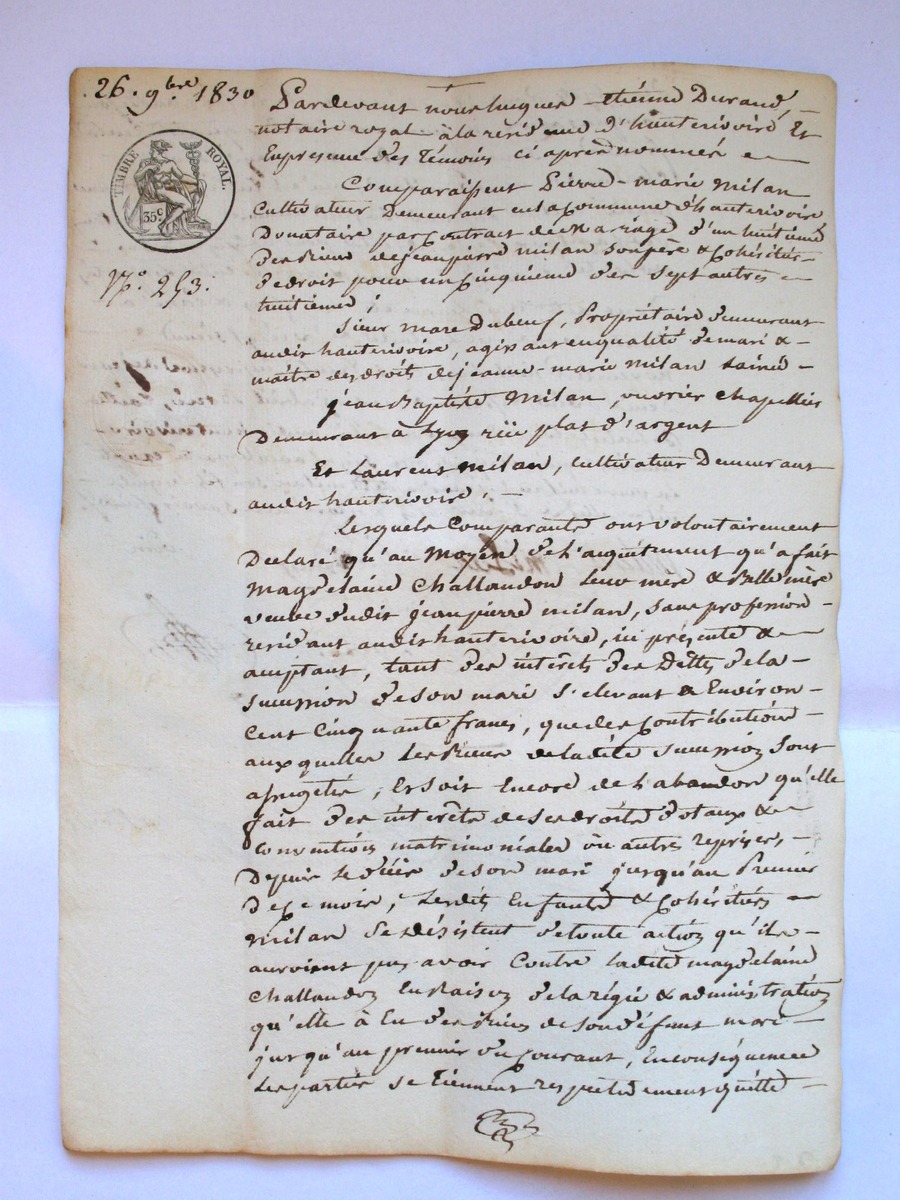 26. 9bre 1830
TIMBRE ROYAL.
35c
No. 253.
Pardevant nous luques-étienne Durand,
notaire royal à la residence d'hauterivoire Et
En presence des Temoins ci après nommés
Comparaissent Pierre-marie milan
Cultivateur Demeurant en la Commune d'hauterivoire
Donataire par Contract de Mariage d'un huitième
des Biens de jean pierre milan son père & Cohéritier
de droit pour un Cinquieme des sept autres
huitièmes ;
Sieur marc Dubeuf, Propriétaire demeurant
audit hauterivoire, agissant en qualité de mari &
maître des droits de jeanne-marie milan l'ainée
jean Baptiste Milan, ouvrier chapellier
Demeurant à Lyon rüe plat d'argent
Et Laurent Milan, cultivateur Demeurant
audit hauterivoire,
Lesquels Comparants ont volontairement
Declaré qu'au Moyen de l'acquittement qu'a fait
magdelaine Challandon leur mère & Belle mère
veuve dudit jean pierre milan, sans profession
residant audit hauterivoire, ici présente &
acceptant, tant des intérêts des Dettes de la
succession de son mari s'elevant à Environ
Cent Cinquante francs, que des Contributions
auxquelles les Biens de la dite succession sont
assujetis, Et soit Encore de l'abandon qu'elle
fait des intérêts de ses droits dotaux &
conventions matrimoniales ou autres reprises,
Depuis le décès de son mari jusqu'au Premier
de ce mois, Lesdits Enfants & Cohéritiers
milan se désistent de toute action qu'ils
auroient pu avoir Contre ladite magdelaine
Challandon En Raison de la régie & administration
qu'elle à Eu des Biens de son défunt mari
jusqu'au premier du Courant, En conséquence
Les parties se Tiennent respectivement quitte